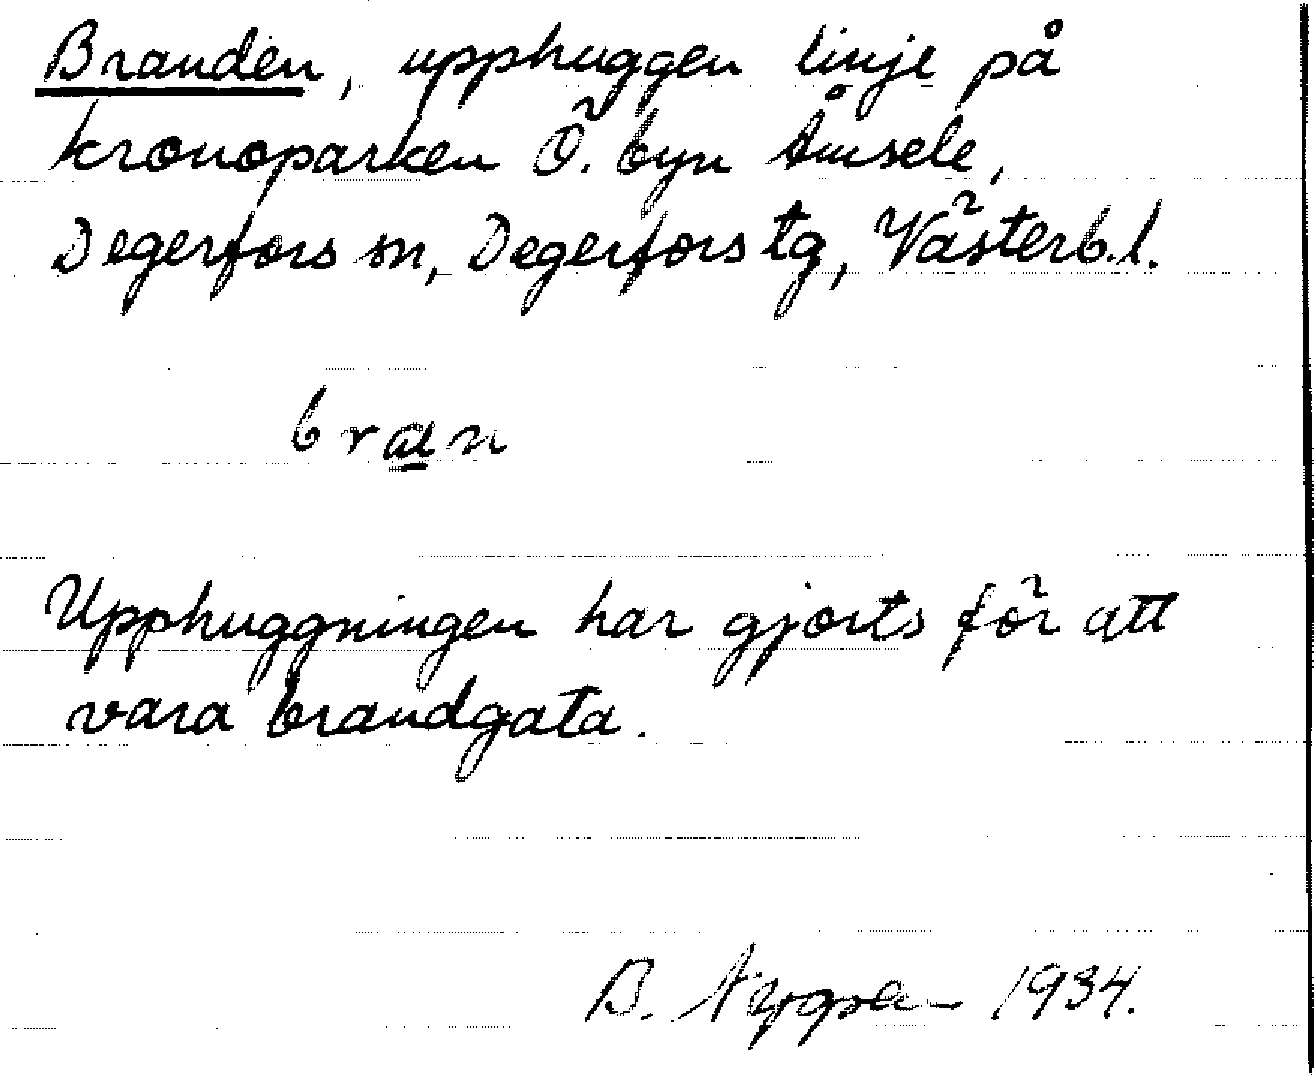 Branden, upphuggen linje på
kronoparken Ö. byn Åmsele,
Degerfors sn, Degerfors tg, Västerb. l.
bran
Upphuggningen har gjorts för att
vara brandgata.
B. 1934.